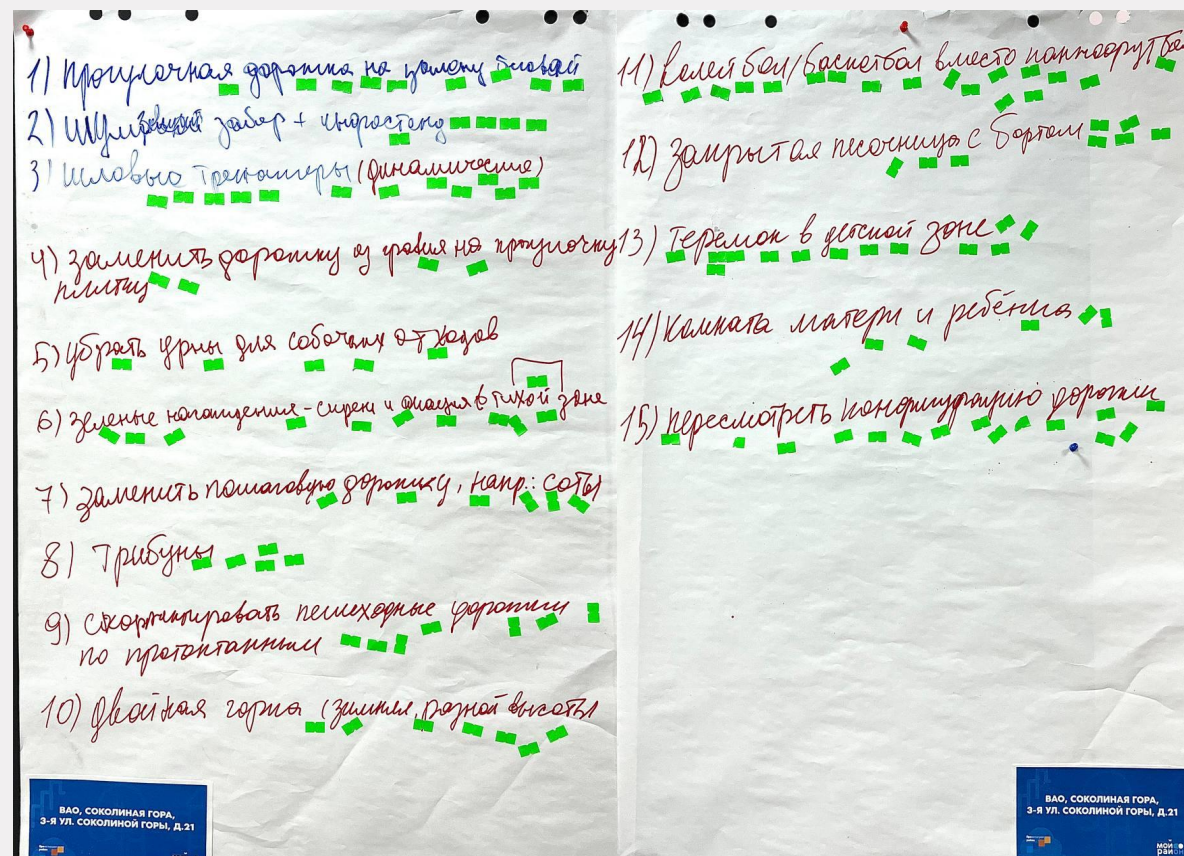 1) Прогулочная дорожка на замену беговой
2) Шум забор + инфростенд
3) Силовые тренажеры (динамические)
4) заменить дорожку из гравия на прогулочну
плитку
5) убрать урны для собачьих отходов
6) Зеленые насаждения - сирень и акация в тихой зоне
7) заменить пошаговую дорожку, напр.: соты
8) Трибуны
9) скорректировать пешеходные дорожки
по протоптанным
10) двойная горка (зимняя, разной высоты
11) волейбол/баскетбол вместо
12) закрытая песочница с бортом
13) теремок в детской зоне
14) комната матери и ребёнка
15) пересмотреть конфигурацию дорожки
ВАО, СОКОЛИНАЯ ГОРА,
3-Я УЛ. СОКОЛИНОЙ ГОРЫ, Д.21
ВАО, СОКОЛИНАЯ ГОРА,
3-Я УЛ. СОКОЛИНОЙ ГОРЫ, Д.21
МОЙ
РАЙОН